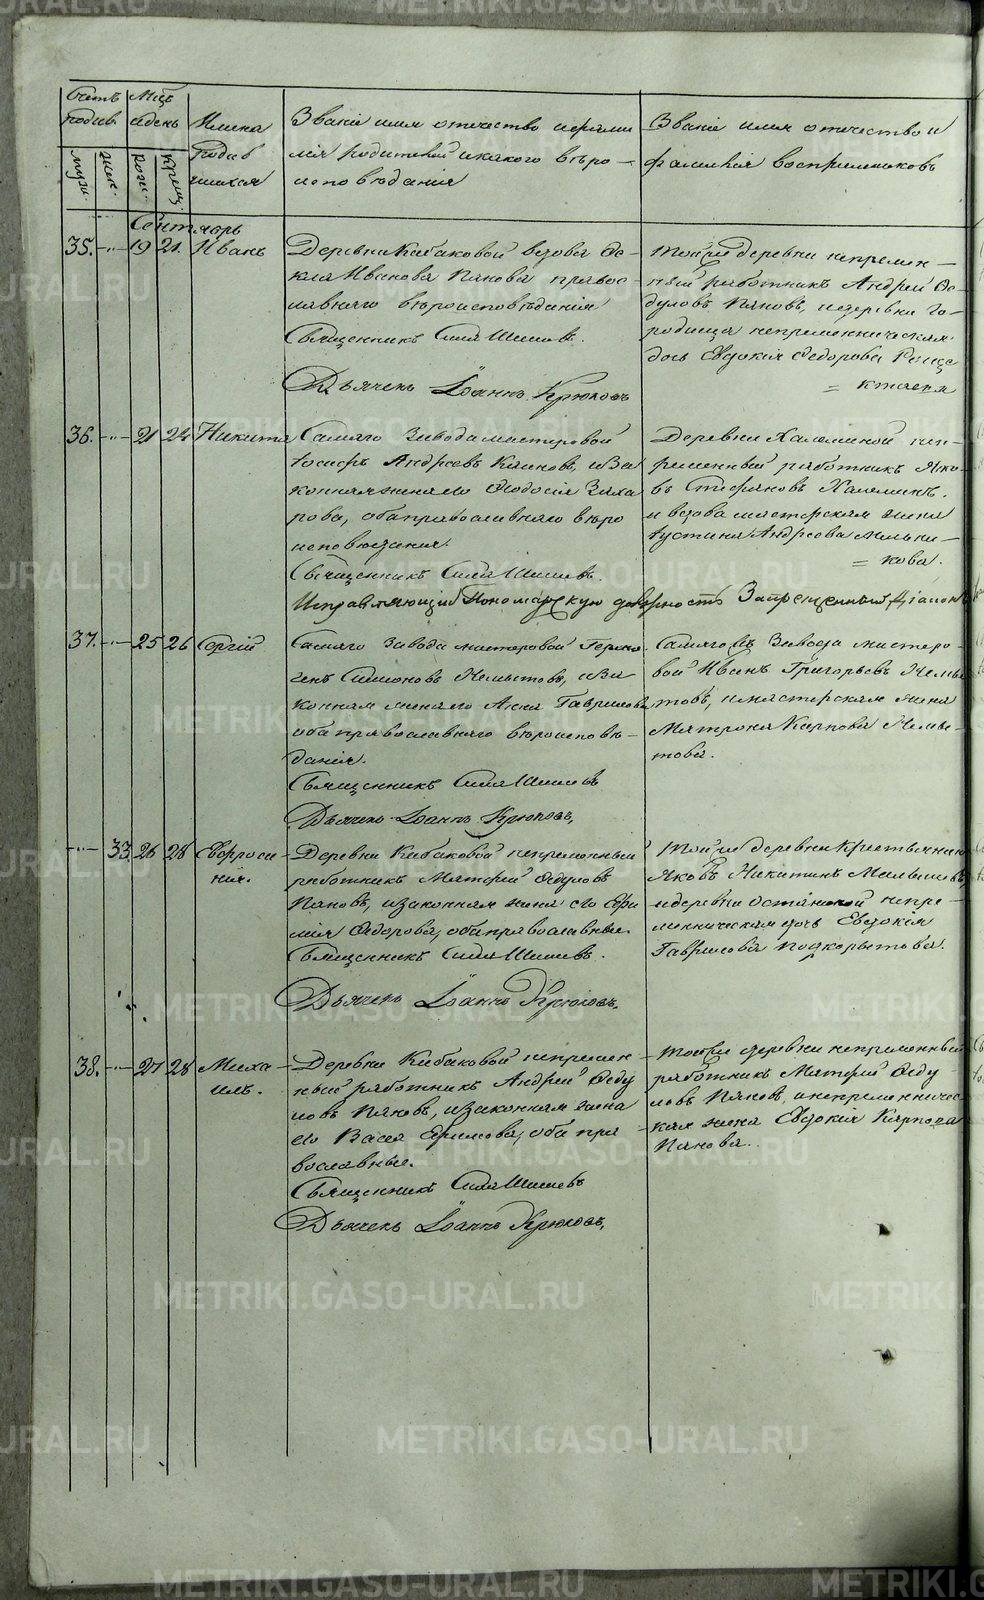 METRIKI.GASO-URAL.RU
Счетъ родив. муж. жен.
Мсцъ и день рожд. крещ.
Имена родив шихся
Званiе имя отечество и фами
лiя родителей и какого вѣро
исповѣданiя
Званiе имя отечество и
фамилiя воспрiемниковъ
Сентябрь
35. 19 21. Иванъ
Деревни Кабаковой вдова Ѳе
кла Иванова Панова правос
лавнаго вѣроисповѣданiя
Священникъ Сила Шишевъ.
Дьячекъ Iоаннъ Крюковъ
Той же деревни непремен
ный работникъ Андрей Ѳе
дуловъ Пановъ, и деревни Го
родища непременническая
дочь Евдокiя Федорова
36. 21 24 Никита
Самаго Завода мастеровой
Iосифъ Андреевъ и за
конная жена его Ѳеодосiя Заха
рова, оба православнаго вѣро
исповѣданiя.
Священникъ Сила Шишевъ.
Исправляющiй Пономарскую должность Запрещенный Дiаконъ
Деревни Халеминой неп
ременный работникъ Яко
въ Стефановъ Халеминъ.
и вдова мастерская жена
Iустина Андреева Мельни
= кова.
37. 25 26 Сергiй
Самаго Завода мастеровой Гермо
генъ Симоновъ и за
конная жена его Анна Гаврилова
оба православнаго вѣроисповѣ
данiя.
Священникъ Сила Шишевъ
Дьячекъ Iоаннъ Крюковъ,
Самаго Завода мастеро
вой Иванъ Григорьевъ
и мастерская жена
Матрона Карпова
33. 26 28 Евфроси
нiя.
Деревни Кабаковой непременный
работникъ Матфей Ѳедуловъ
Пановъ, и законная жена его Ефи
мiя Ѳедорова, оба православные.
Священникъ Сила Шишевъ.
Дьячекъ Iоаннъ Крюковъ,
Той же деревни крестьянинъ
Яковъ Никитинъ
и деревни Останиной непре
менническая дочь Евдокiя
Гаврилова Подкорытова.
38. 27 28 Миха
илъ.
Деревни Кабаковой непремен
ный работникъ Андрей Ѳеду
ловъ Пановъ, и законная жена
его Васса Ефимова, оба пра
вославные.
Священникъ Сила Шишевъ
Дьячекъ Iоаннъ Крюковъ,
Той же деревни непременный
работникъ Матфей Ѳеду
ловъ Пановъ, и непременничес
кая жена Евдокiя Карпова
Панова.